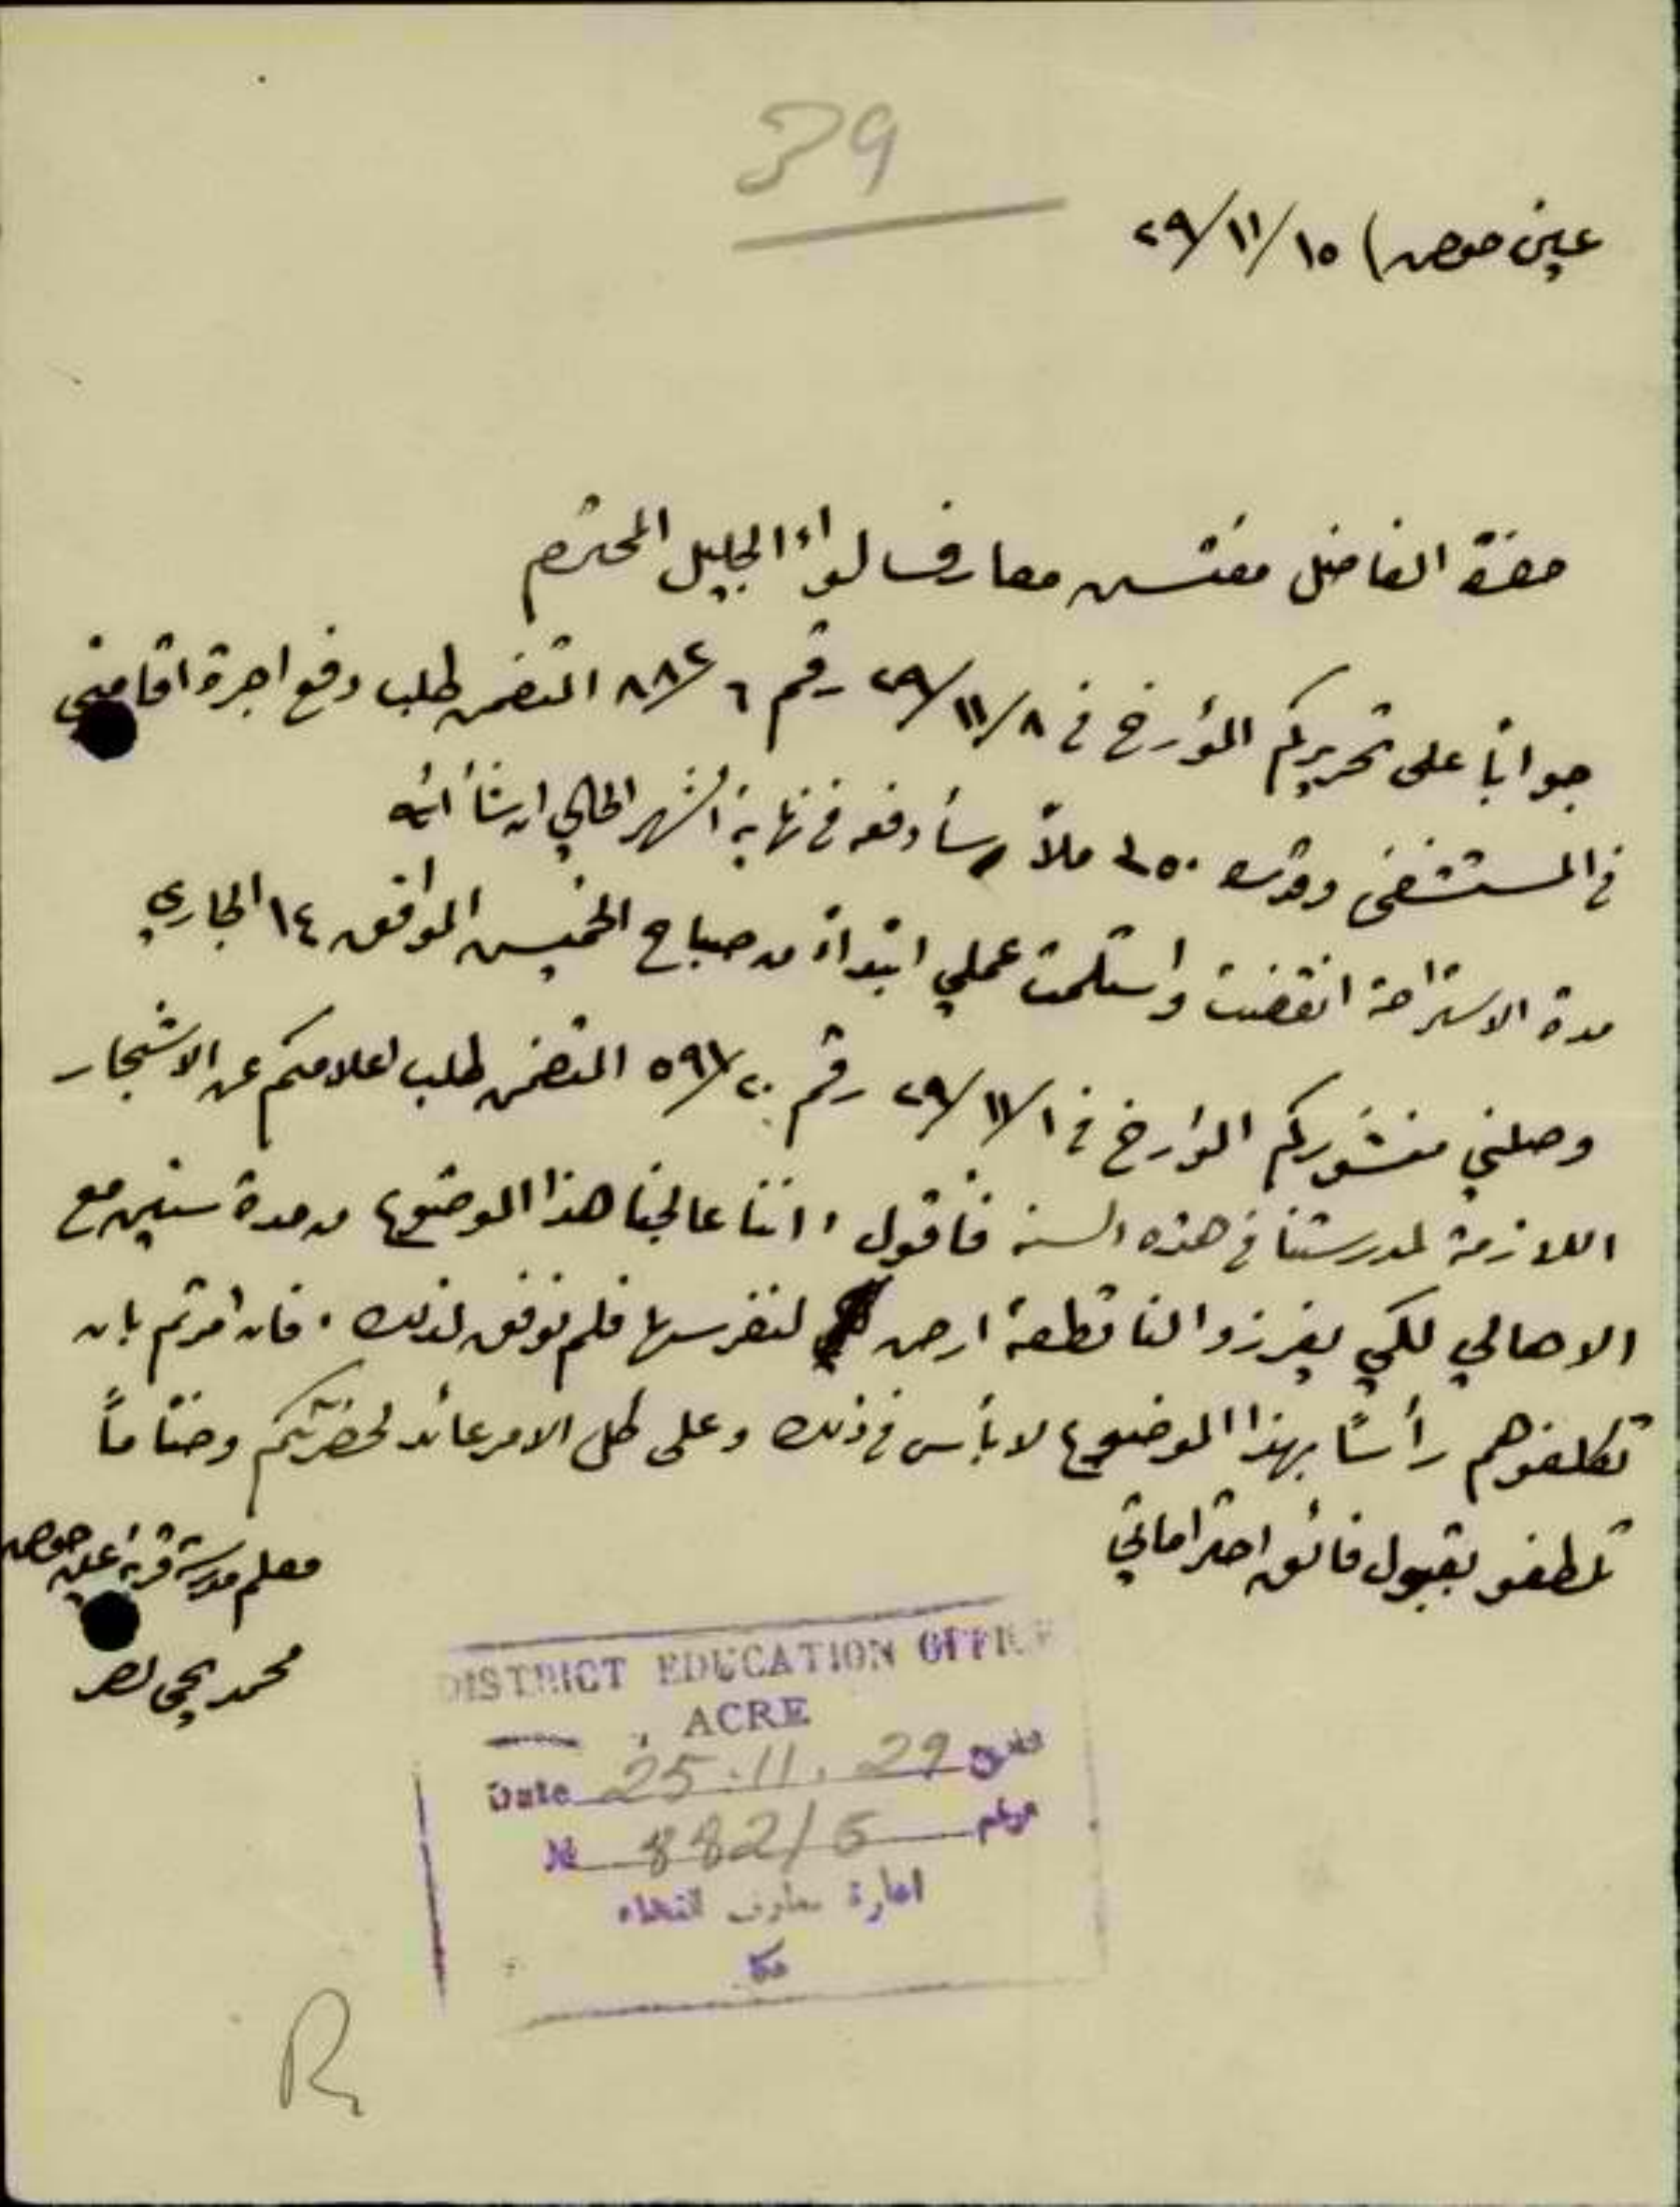 39
عين حوض) ١٥/١١/٢٩
حضرة الفاضل مفتش معارف لواء الجليل المحترم
جواباً على تحريركم المؤرخ في ٨/١١/٢٩ رقم ٦/٨٨٢ المتضمن طلب دفع اجرة اقامتي
في المستشفى وقدره ٦٥٠ ملاً سأدفعه في نهاية الشهر الحالي ان شأ الله
مدة الاستراحة انقضت واستلمت عملي ابتداء من صباح الخميس الموافق ١٤ الجاري
وصلني منشوركم المؤرخ في ١/١١/٢٩ رقم ٢٠/٥٩١ المتضمن طلب اعلامكم عن الاشجار
اللازمة لمدرستنا في هذه السنة فأقول، اننا عالجنا هذا الموضوع من مدة سنتين مع
الاهالي لكي يفرزوا لنا قطعة ارض لنغرسها فلم نوفق لذلك. فان امرتم بان
تكلفوهم رأساً بهذا الموضوع لا بأس في ذلك وعلى كل الامر عائد لحضرتكم وختاماً
تلطفو بقبول فائق احتراماتي
معلم مدرسة قرية عين حوض
محمد يحيى نصر
DISTRICT EDUCATION OFFICE
ACRE
Date 25.11.29 تاريخ
№ 882/5 رقم
ادارة معارف القضاء
عكا
R